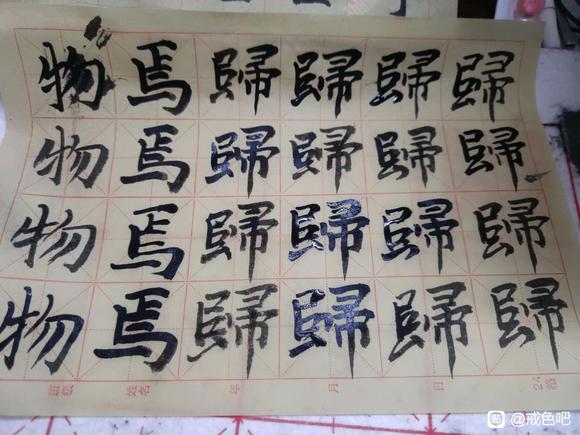 物焉歸歸歸歸
物焉歸歸歸歸
物焉歸歸歸歸
物焉歸歸歸歸
班级 姓名 年 月 日 24格
@戒色吧